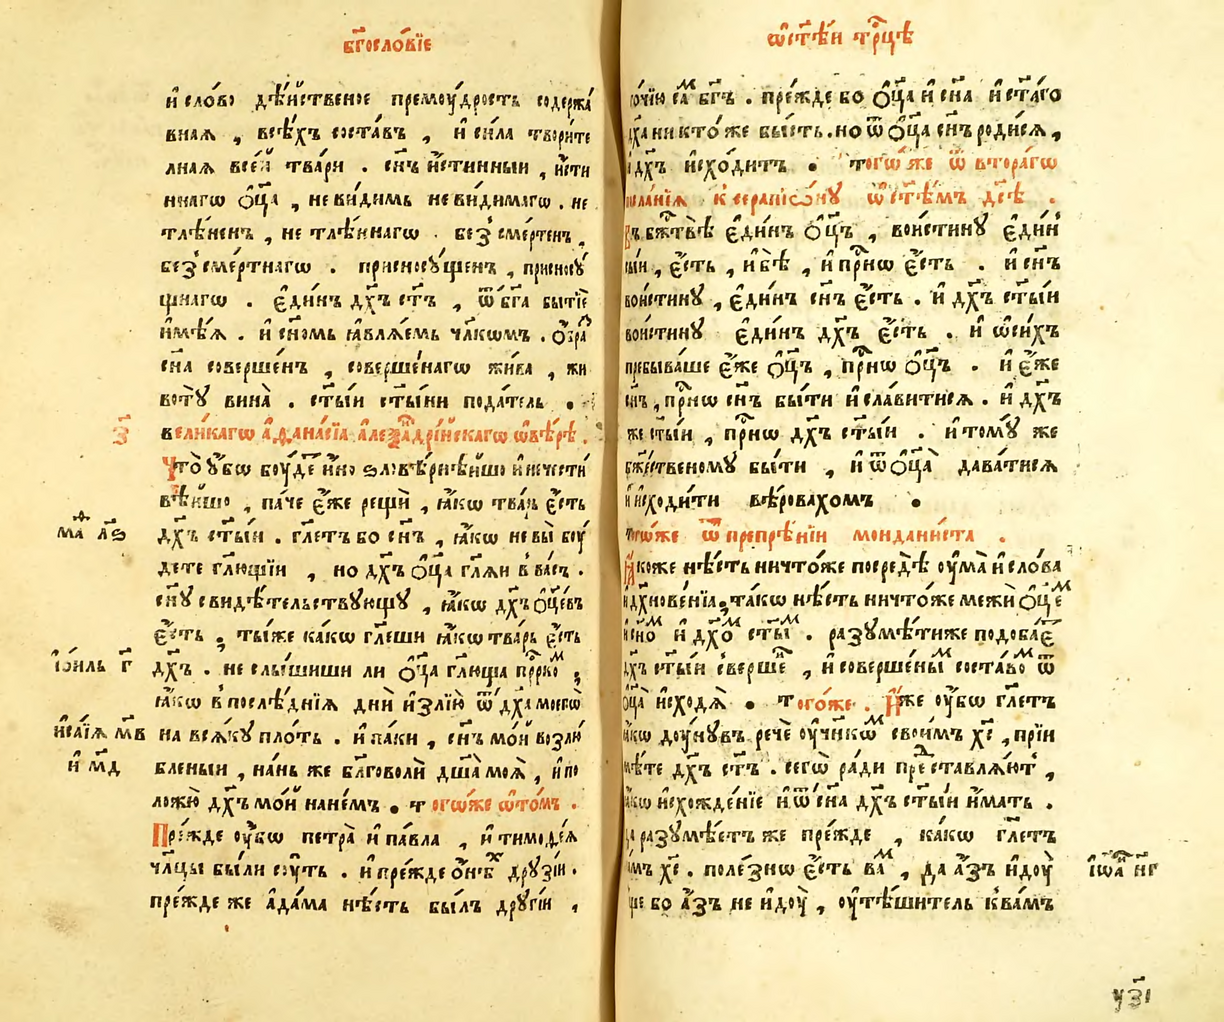 бг҃осло́вїе
и҆ сло́во дѣ́йственое премоу́дрость содержа́
внаѧ , всѣ́хъ соста́въ , и҆ си́ла твори́те
лнаѧ все́й тва́ри . сн҃ъ и҆́стинныи , и҆́сти
ннагѡ ѻ҆ц҃а , неви́димь неви́димагѡ . не
тлѣ́ненъ , не тлѣ́ннагѡ . без̾сме́ртенъ ,
без̾сме́ртнагѡ . присносу́щенъ , присносу́
щнагѡ . є҆ди́нъ дх҃ъ ст҃ъ , ѿ бг҃а бытїѐ
и҆мѣ́ѧ . и҆ сн҃омь ꙗ҆влѧ́емь чл҃комъ . ѻ҆́браⷥ
сн҃а соверше́нъ , соверше́нагѡ жи́ва , жи
воту̀ вина̀ . ст҃ы́и ст҃ы́ни пода́тель .
з҃
вели́кагѡ а҆ѳана́сїа а҆леѯаⷩ҇дрі́йскагѡ ѡ҆вѣ́рѣ .
Что̀ ᲂу҆́бѡ боу́де и҆́но ѕловѣ́рнѣйшо и҆ нечести́
вѣйшо , па́че є҆́же рещѝ , ꙗ҆́кѡ тва́рь є҆́сть
маⷴ л҃ѕ
дх҃ъ ст҃ы́и . гл҃етъ бо сн҃ъ , ꙗ҆́кѡ не вы̀ бꙋ́
дете гл҃ющїи , но дх҃ъ ѻ҆ц҃а гл҃ѧи в ва́съ .
сн҃у свидѣ́тельствующу , ꙗ҆́кѡ дх҃ъ ѻ҆́ц҃евъ
є҆́сть , ты́же ка́кѡ гл҃еши ꙗ҆́кѡ тва́рь є҆́сть
і҆ѡ́иль г҃
дх҃ъ . не слы́шиши ли ѻ҆ц҃а гл҃юща прⷪ҇рко́ⷨ ,
ꙗ҆́кѡ в послѣ́днїѧ дни̑ и҆злїю̀ ѿ дх҃а моегѡ̀
и҆са́їѧ м҃в
на всѧ́ку пло́ть . и҆ па́ки , сн҃ъ мо́и возлю́
и҆ м҃д
бленыи , на́нь же бл҃говолѝ дш҃а моѧ̀ , и҆ по
ложю̀ дх҃ъ мо́й нане́мъ . тогѡ́же ѡ҆то́мъ .
Пре́жде ᲂу҆́бѡ петра̀ и҆ па́вла , и҆ тимоѳе́ѧ
чл҃цы бы́ли сꙋ́ть . и҆ пре́жде ѻ҆нѣ́ⷯ дру́зїи .
пре́жде же а҆да́ма нѣ́сть бы́лъ дру́гїи ,
ѡ҆ ст҃ѣ́и трⷪ҇цѣ
то́чїю са́ⷨ бг҃ъ . пре́жде бо ѻ҆ц҃а и҆ сн҃а и҆ ст҃а́го
дх҃а никто́же бы́сть . но ѿ ѻ҆ц҃а сн҃ъ роди́сѧ ,
и҆ дх҃ъ и҆схо́дитъ . тогѡ́же ѿ втора́гѡ
посла́нїѧ к серапїѡ́ну ѡ҆ ст҃ѣ́мъ дс҃ѣ .
Въ бж҃твѣ̀ є҆ди́нъ ѻ҆ц҃ъ , вои́стину є҆ди́н̾
сы́и , є҆́сть , и҆ бѣ̀ , и҆ прⷭ҇нѡ є҆́сть . и҆ сн҃ъ
вои́стину , є҆ди́нъ сн҃ъ є҆́сть . и҆ дх҃ъ ст҃ы́и
вои́стину є҆ди́нъ дх҃ъ є҆́сть . и҆ ѡ҆си́хъ
пребыва́ше є҆́же ѻ҆ц҃ъ , прⷭ҇нѡ ѻ҆ц҃ъ . и҆ є҆́же
сн҃ъ , прⷭ҇нѡ сн҃ъ бы́ти и҆ сла́витисѧ . и҆ дх҃ъ
же ст҃ы́и , прⷭ҇нѡ дх҃ъ ст҃ы́и . и҆ тому́ же
бж҃е́ственому бы́ти , и҆ ѿ ѻ҆ц҃а̀ дава́тисѧ
и҆ и҆сходи́ти вѣ́ровахомъ .
тогѡ́же ѿ препрѣ́нїи мондани́ста .
Ꙗ҆́коже нѣ́сть ничто́же посредѣ̀ ᲂу҆ма̀ и҆ сло́ва
и҆ дх҃нове́нїа , та́кѡ нѣ́сть ничто́же межѝ ѻ҆ц҃еⷨ
и҆ сн҃оⷨ и҆ дх҃оⷨ ст҃ыⷨ . разумѣ́тиже подоба́є
дх҃ъ ст҃ы́и сверше́ⷩ , и҆ соверше́ныⷨ соста́воⷨ ѿ
ѻ҆ц҃а̀ и҆сходѧ̀ . того́же . Ꙗ҆́же ᲂу҆́бѡ гл҃етъ
ꙗ҆́кѡ доу́нувъ речѐ ᲂу҆чн҃кѡⷨ свои́мъ хс҃ , прїи
мѣ́те дх҃ъ ст҃ъ . сегѡ̀ ра́ди преⷣставлѧ́ют̾ ,
ꙗ҆́кѡ и҆схожде́нїе и҆ ѿ сн҃а дх҃ъ ст҃ы́и и҆́мать .
да разумѣ́етъ же пре́жде , ка́кѡ гл҃етъ
и҆́мъ хс҃ . поле́знѡ є҆́сть ва́ⷨ , да а҆́зъ и҆доу̀
і҆ѡаⷩ҇ н҃г
ще бо а҆́зъ не и҆доу̀ , ᲂу҆тѣ́шитель к ва́мъ
у҃зі